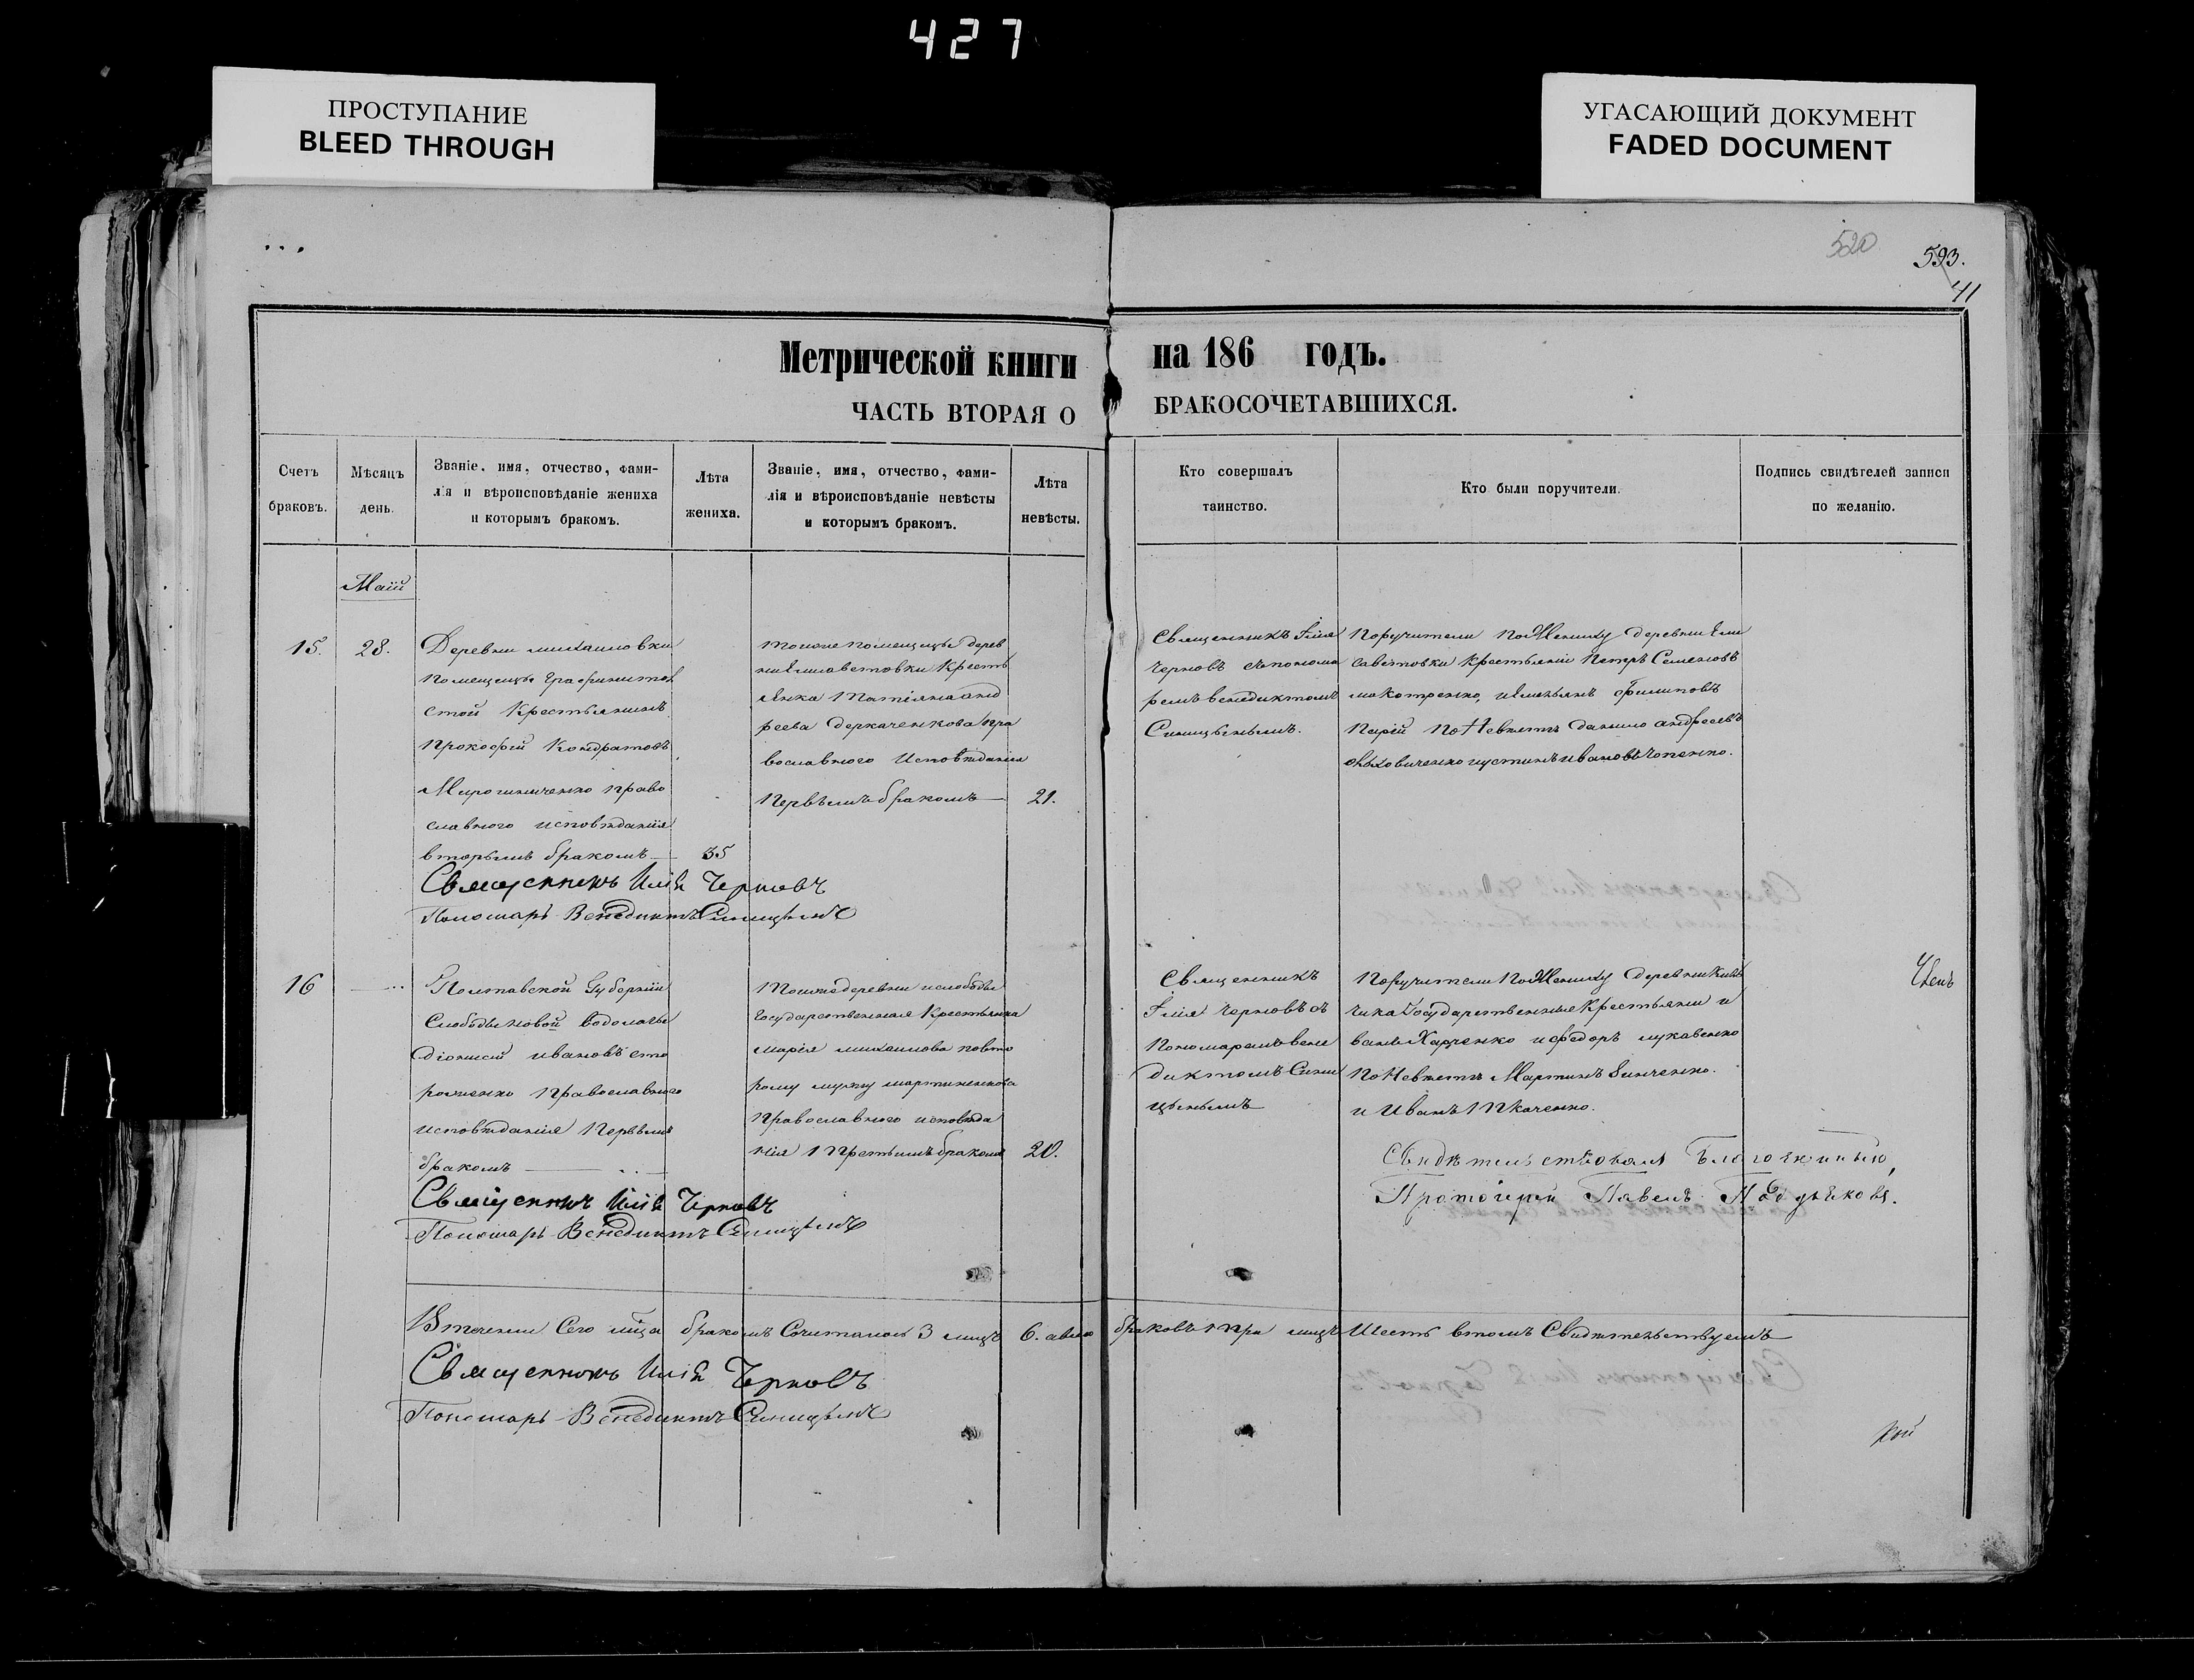 427
ПРОСТУПАНИЕ
BLEED THROUGH
УГАСАЮЩИЙ ДОКУМЕНТ
FADED DOCUMENT
520
593.
41
Метрической книги на 186 годъ.
ЧАСТЬ ВТОРАЯ О БРАКОСОЧЕТАВШИХСЯ.
Счетъ
браковъ.
Мѣсяцъ
день.
Званіе, имя, отчество, фами-
лія и вѣроисповѣданіе жениха
и которымъ бракомъ.
Лѣта
жениха.
Званіе, имя, отчество, фами-
лія и вѣроисповѣданіе невѣсты
и которымъ бракомъ.
Лѣта
невѣсты.
Кто совершалъ
таинство.
Кто были поручители.
Подпись свидѣтелей записи
по желанію.
Маій
15.
28.
Деревни михаиловки
помещицы Графини тол
стой Крестьянинъ
Прокофій Кондратовъ
право
славнаго исповѣданія
вторымъ бракомъ
35
тойже помещицы дерев
ни Елисаветовки Кресть
янка Татіяна анд
реева деркаченкова пра
вославного Исповѣданія
Первымъ бракомъ
21.
Священникъ Іліа
Черновъ спонома
ремъ венедиктомъ
Синицынымъ.
Поручители по Жениху деревни Ели
саветовки крестьяніи Петръ Семеновъ
макотренко, и Филиповъ
по Невѣстѣ данило андреевъ
и устинъ ивановъ
Священникъ Илія Черновъ
Пономарь Венедиктъ Синицынъ
16
Полтавской Губерніи
Слободы новой водолаги
діонисій ивановъ сто
роженко Православнаго
исповѣданія Первымъ
бракомъ
тойже деревни и слободы
государственная Крестьянка
марія михаилова повто
рому мужу мартиненкова
Православнаго исповѣда
нія Третьимъ бракомъ
20.
Священникъ
Іліа Черновъ съ
Пономаремъ вене
диктомъ Сини
цынымъ
Поручители по Жениху деревни
чика Государственные Крестьяни и
ванъ Харченко и федоръ лукавенко
по Невѣстѣ Мартинъ Зинченко.
и Иванъ Ткаченко.
Членъ
Свидѣтельствовалъ Благочинный,
Протоіерей Павелъ Подъяковъ.
Священникъ Илія Черновъ
Пономарь Венедиктъ Синицынъ
Втечении Сего мца бракомъ Сочиталось 3 лицъ 6. а всего браковъ три лицъ Шесть втомъ Свидѣтельствуемъ
Священникъ Илія Черновъ
Пономарь Венедиктъ Синицынъ